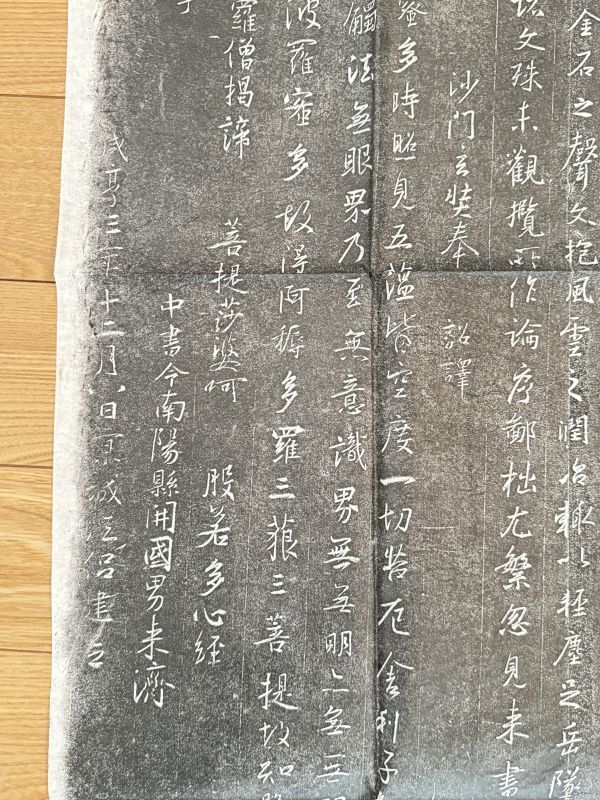 金石之聲文抱風雲之潤治輒以輕塵足岳墜
諸文殊未觀攬所作論序鄙拙尤繁忽見來書
沙門玄奘奉 詔譯
蜜多時照見五蘊皆空度一切苦厄舍利子
觸法無眼界乃至無意識界無無明亦無無明
波羅蜜多故得阿耨多羅三藐三菩提故知般
羅僧揭諦 菩提莎婆呵 般若多心經
中書令南陽縣開國男來濟
咸亨三年十二月八日京城法侶建立